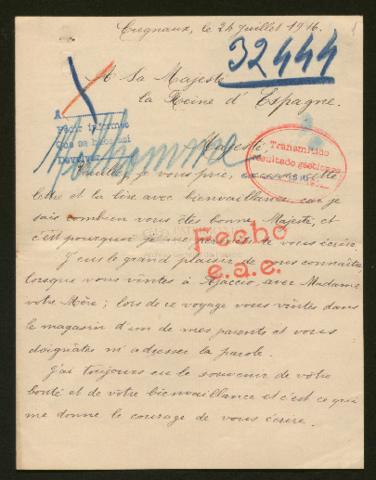 Cregnaux, le 24 Juillet 1916.
32444
A Sa Majesté
la Reine d'Espagne.
A
Pedir informes
Dévolver
Majesté,
Transmitido
resultado gestiones
Veuillez, je vous prie, excuser cette
lettre et la lire avec bienveillance car je
sais combien vous êtes bonne, Majesté, et
c'est pourquoi je me permets de vous écrire.
Fecho
e.a.e.
J'eus le grand plaisir de vous connaître
lorsque vous vîntes à Ajaccio, avec Madame
votre Mère; lors de ce voyage vous vîntes dans
le magasin d'un de mes parents et vous
daignâtes m'adresser la parole.
J'ai toujours eu le souvenir de votre
bonté et de votre bienveillance et c'est ce qui
me donne le courage de vous écrire.